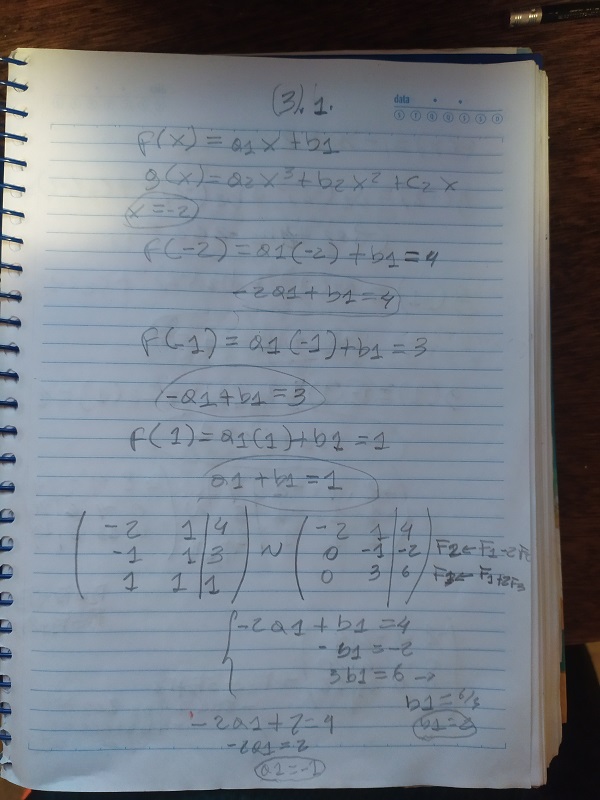 (3). 1.
data
f(x) = a1x + b1
g(x) = a2x³ + b2x² + c2x
x = -2
f(-2) = a1(-2) + b1 = 4
-2a1 + b1 = 4
f(-1) = a1(-1) + b1 = 3
-a1 + b1 = 3
f(1) = a1(1) + b1 = 1
a1 + b1 = 1
-2 1 | 4 ~ -2 1 | 4
-1 1 | 3 0 -1 | -2 F2 ← F1 - 2F2
1 1 | 1 0 3 | 6 F3 ← F1 + 2F3
-2a1 + b1 = 4
- b1 = -2
3b1 = 6 →
b1 = 6/3
b1 = 2
-2a1 + 2 = 4
-2a1 = 2
a1 = -1